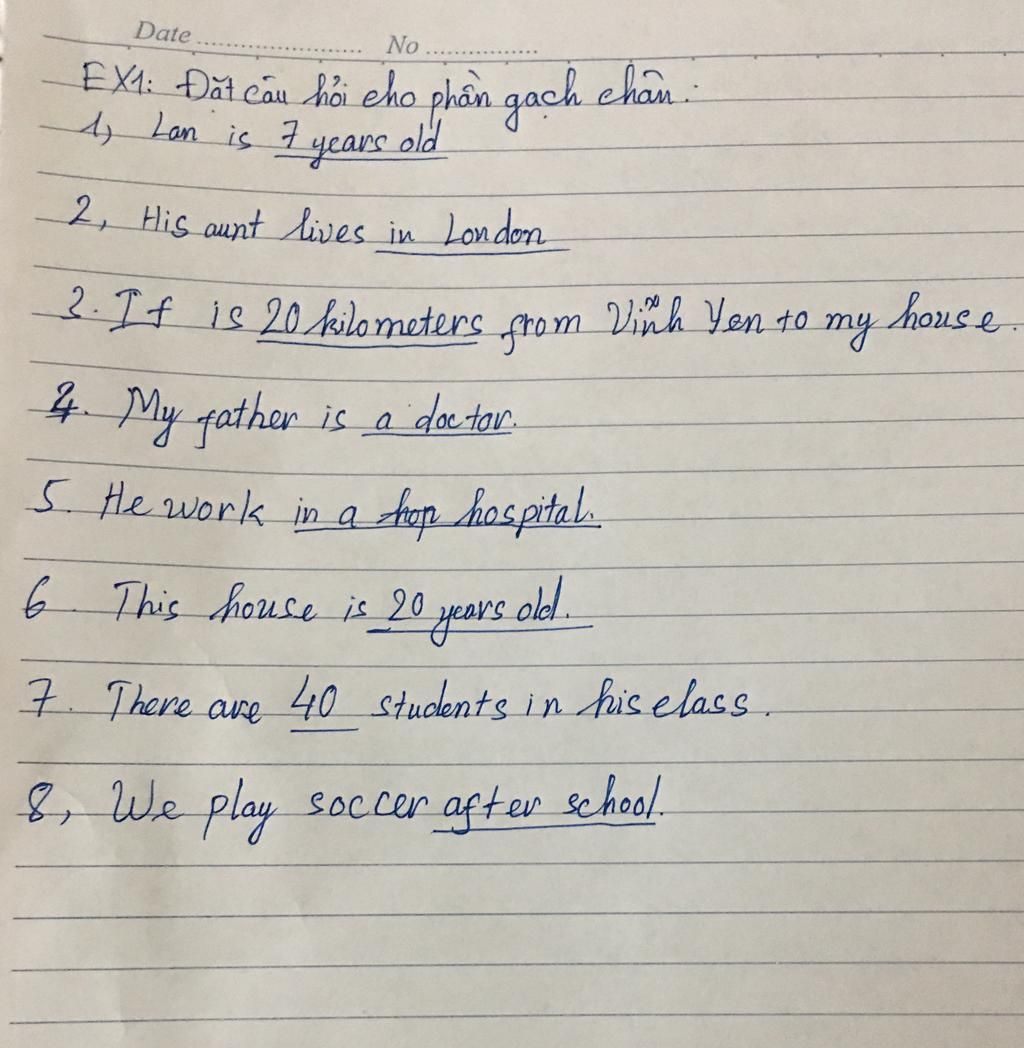 Date ........................ No ................
EX1: Đặt câu hỏi cho phần gạch chân:
1, Lan is 7 years old
2, His aunt lives in London
3. It is 20 kilometers from Vĩnh Yen to my house.
4. My father is a doctor.
5. He work in a hop hospital.
6. This house is 20 years old.
7. There are 40 students in his class.
8, We play soccer after school.